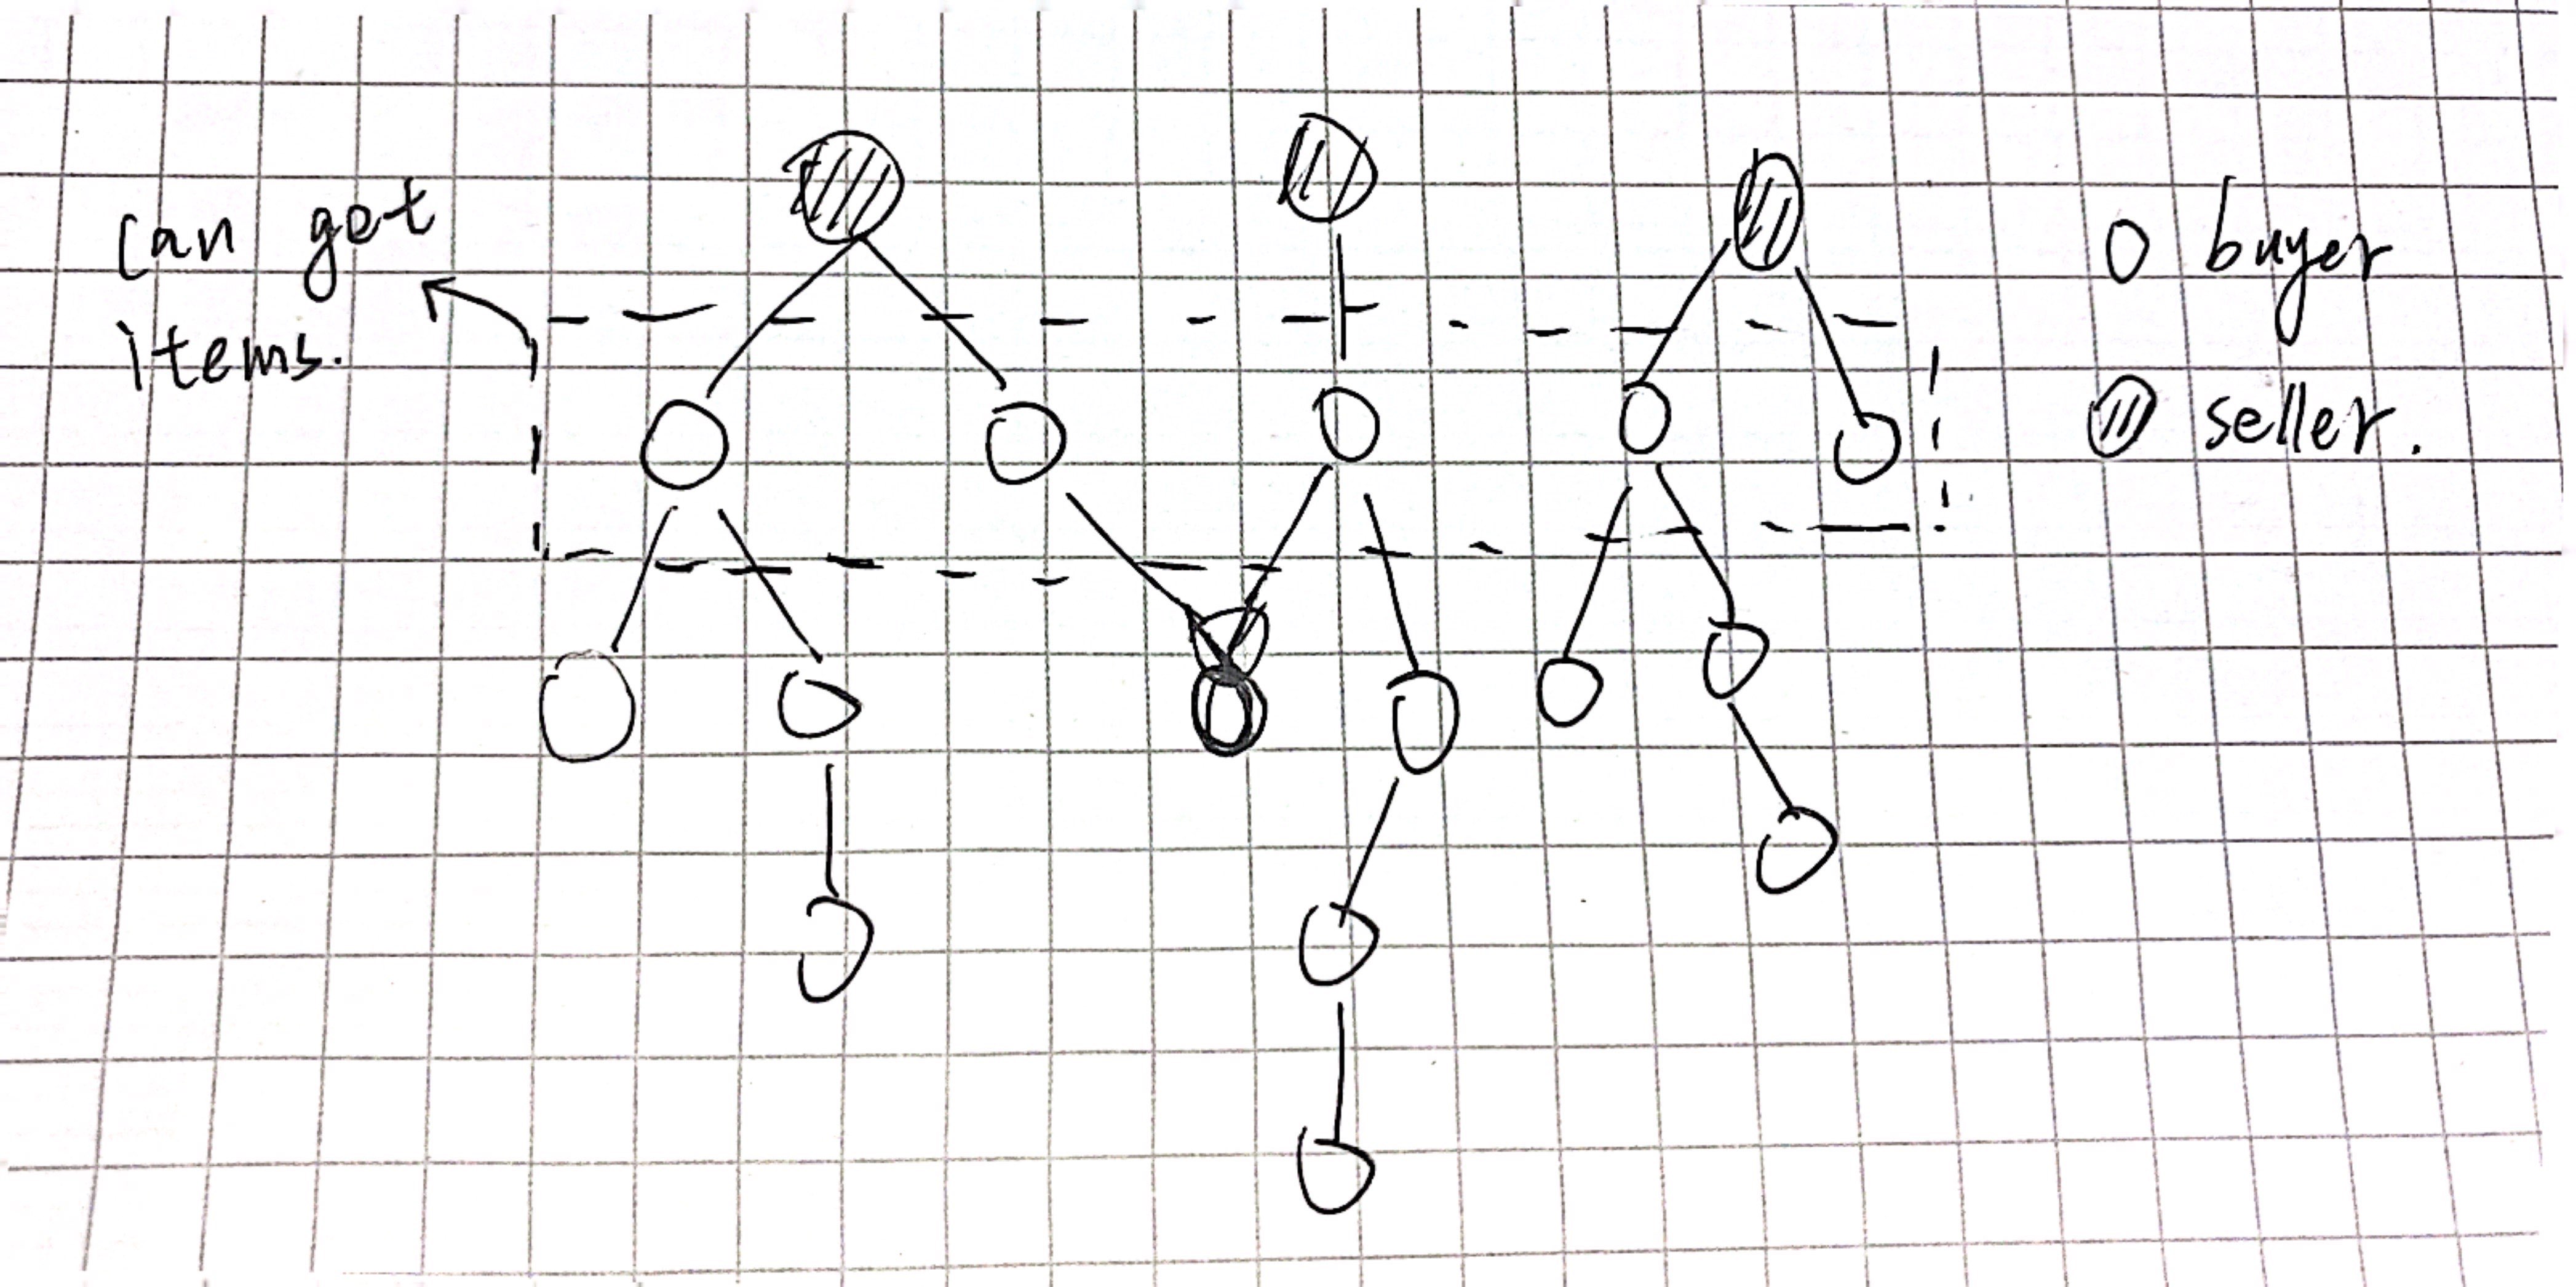 can get
items.
buyer
seller.